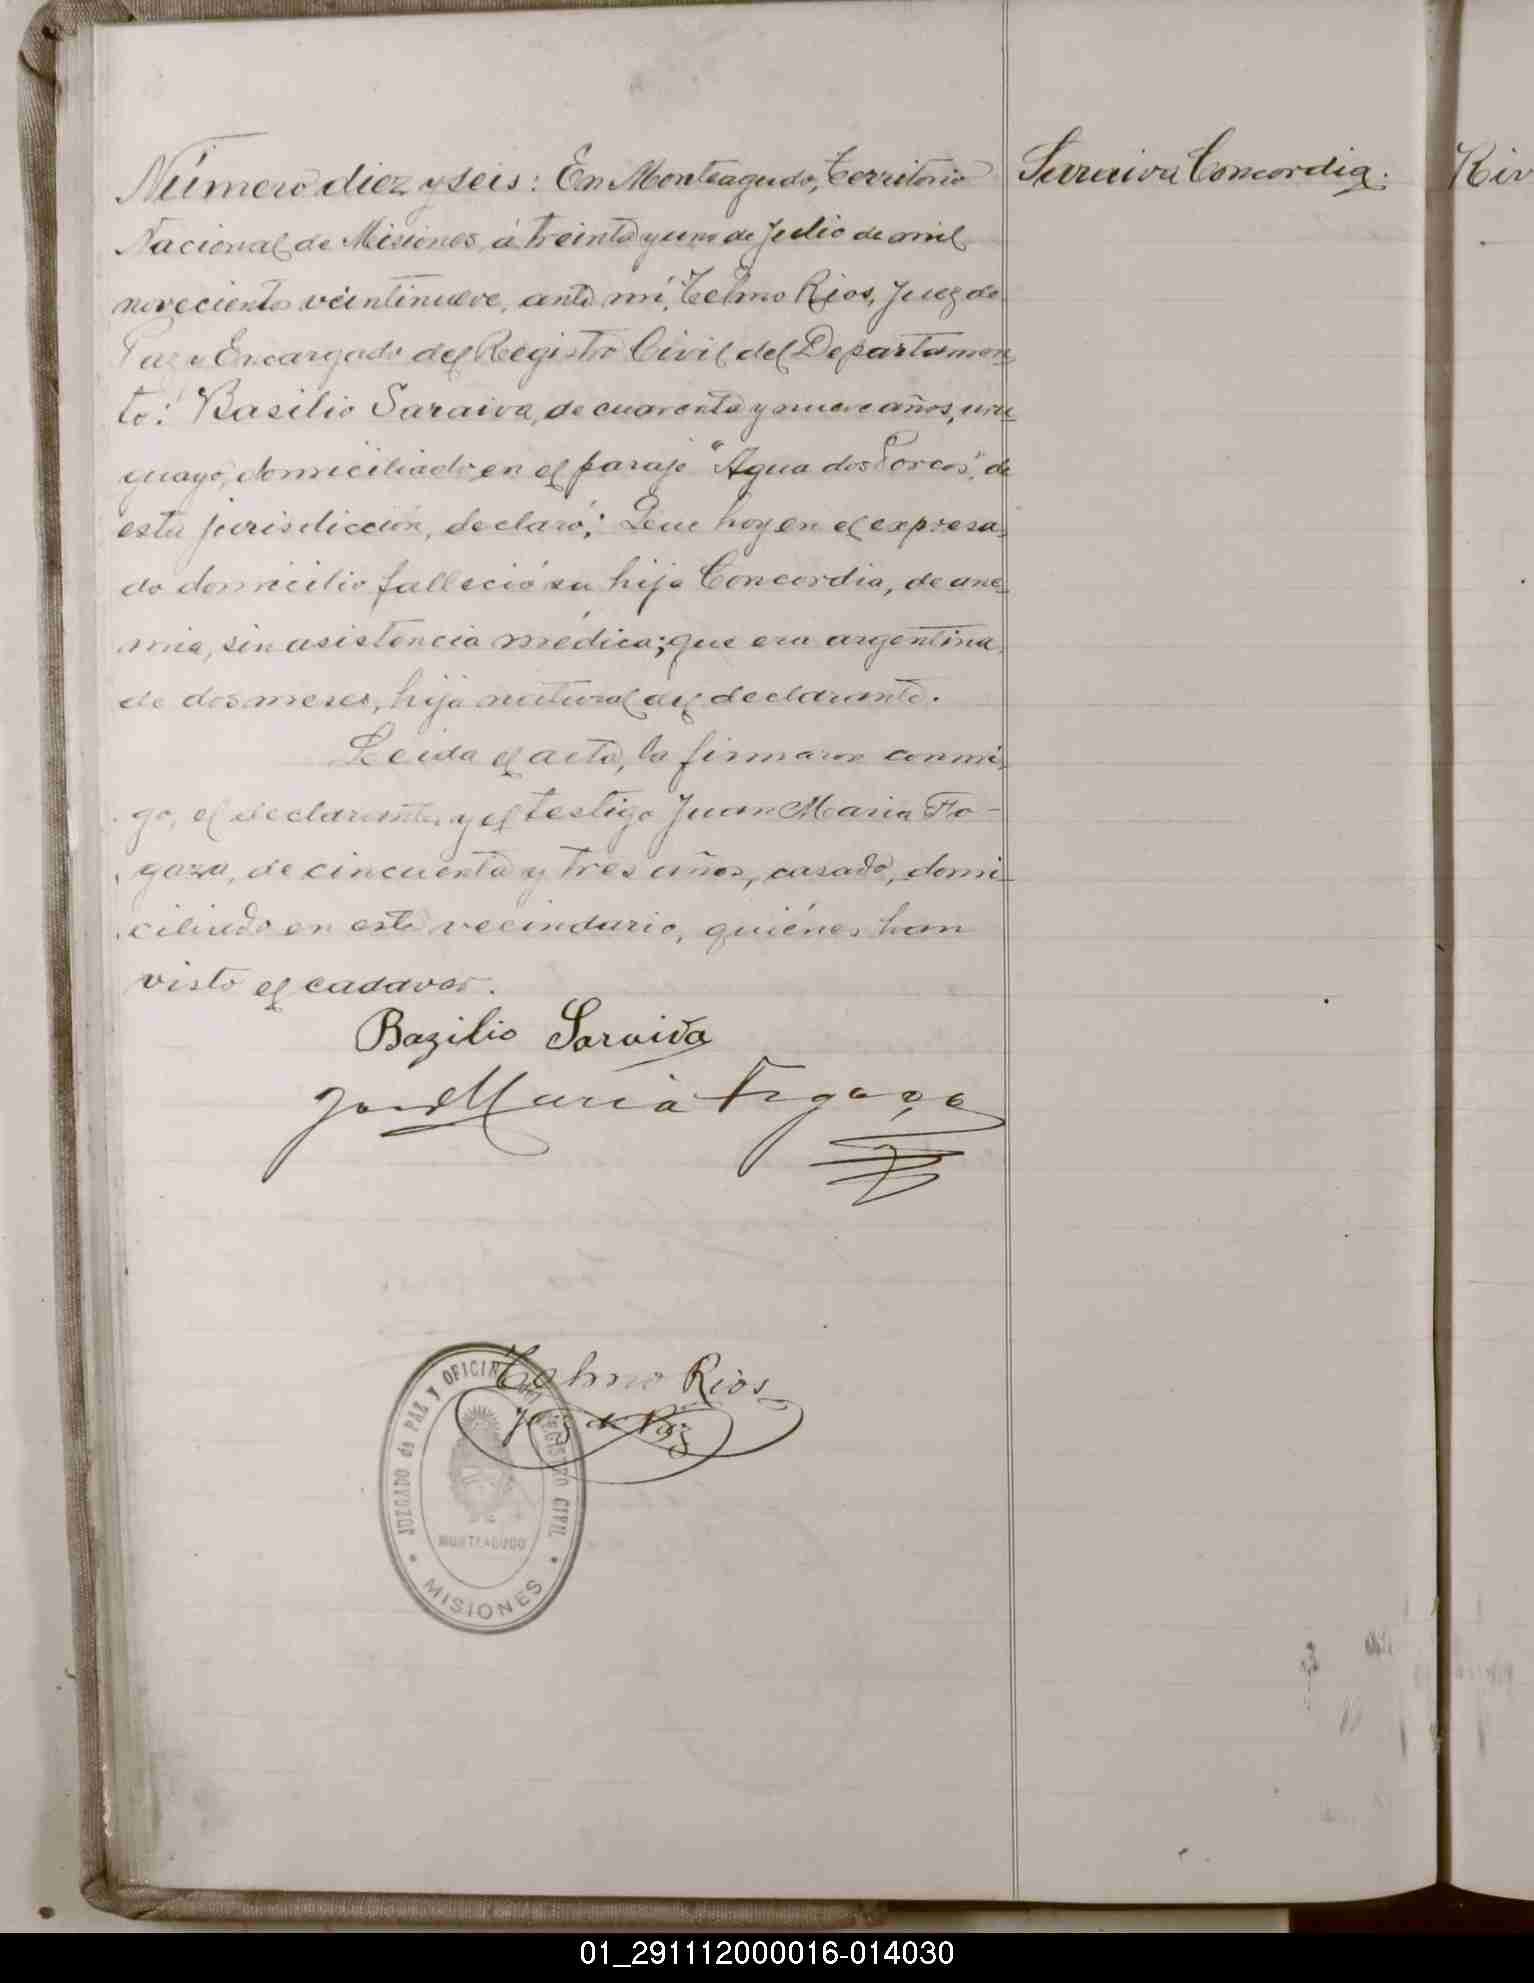 Número diez y seis: En Monteagudo, Territorio
Nacional de Misiones, á treinta y uno de Julio de mil
novecientos veintinueve, ante mí, Telmo Rios, Juez de
Paz y Encargado del Registro Civil del Departamen-
to: Basilio Saraiva, de cuarenta y nueve años, uru-
guayo, domiciliado en el paraje "Agua dos Porcos", de
esta jurisdicción, declaró: Que hoy en el expresa-
do domicilio falleció su hija Concordia, de ane-
mia, sin asistencia médica; que era argentina,
de dos meses, hija natural del declarante.
Leida el acta, la firmaron conmi-
go, el declarante y el testigo Juan Maria Fo-
gaza, de cincuenta y tres años, casado, domi-
ciliado en este vecindario, quiénes han
visto el cadaver.
Bazilio Saraiva
Juan Maria Fogaça
Telmo Rios
Juez de Paz
JUZGADO de PAZ y OFICINA del REGISTRO CIVIL
MONTEAGUDO
MISIONES
Saraiva Concordia.
Riv
01_291112000016-014030